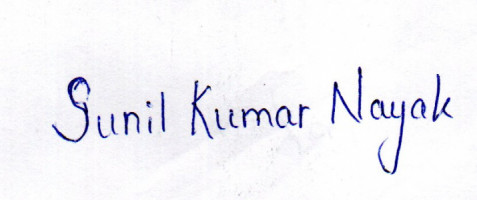 Sunil Kumar Nayak